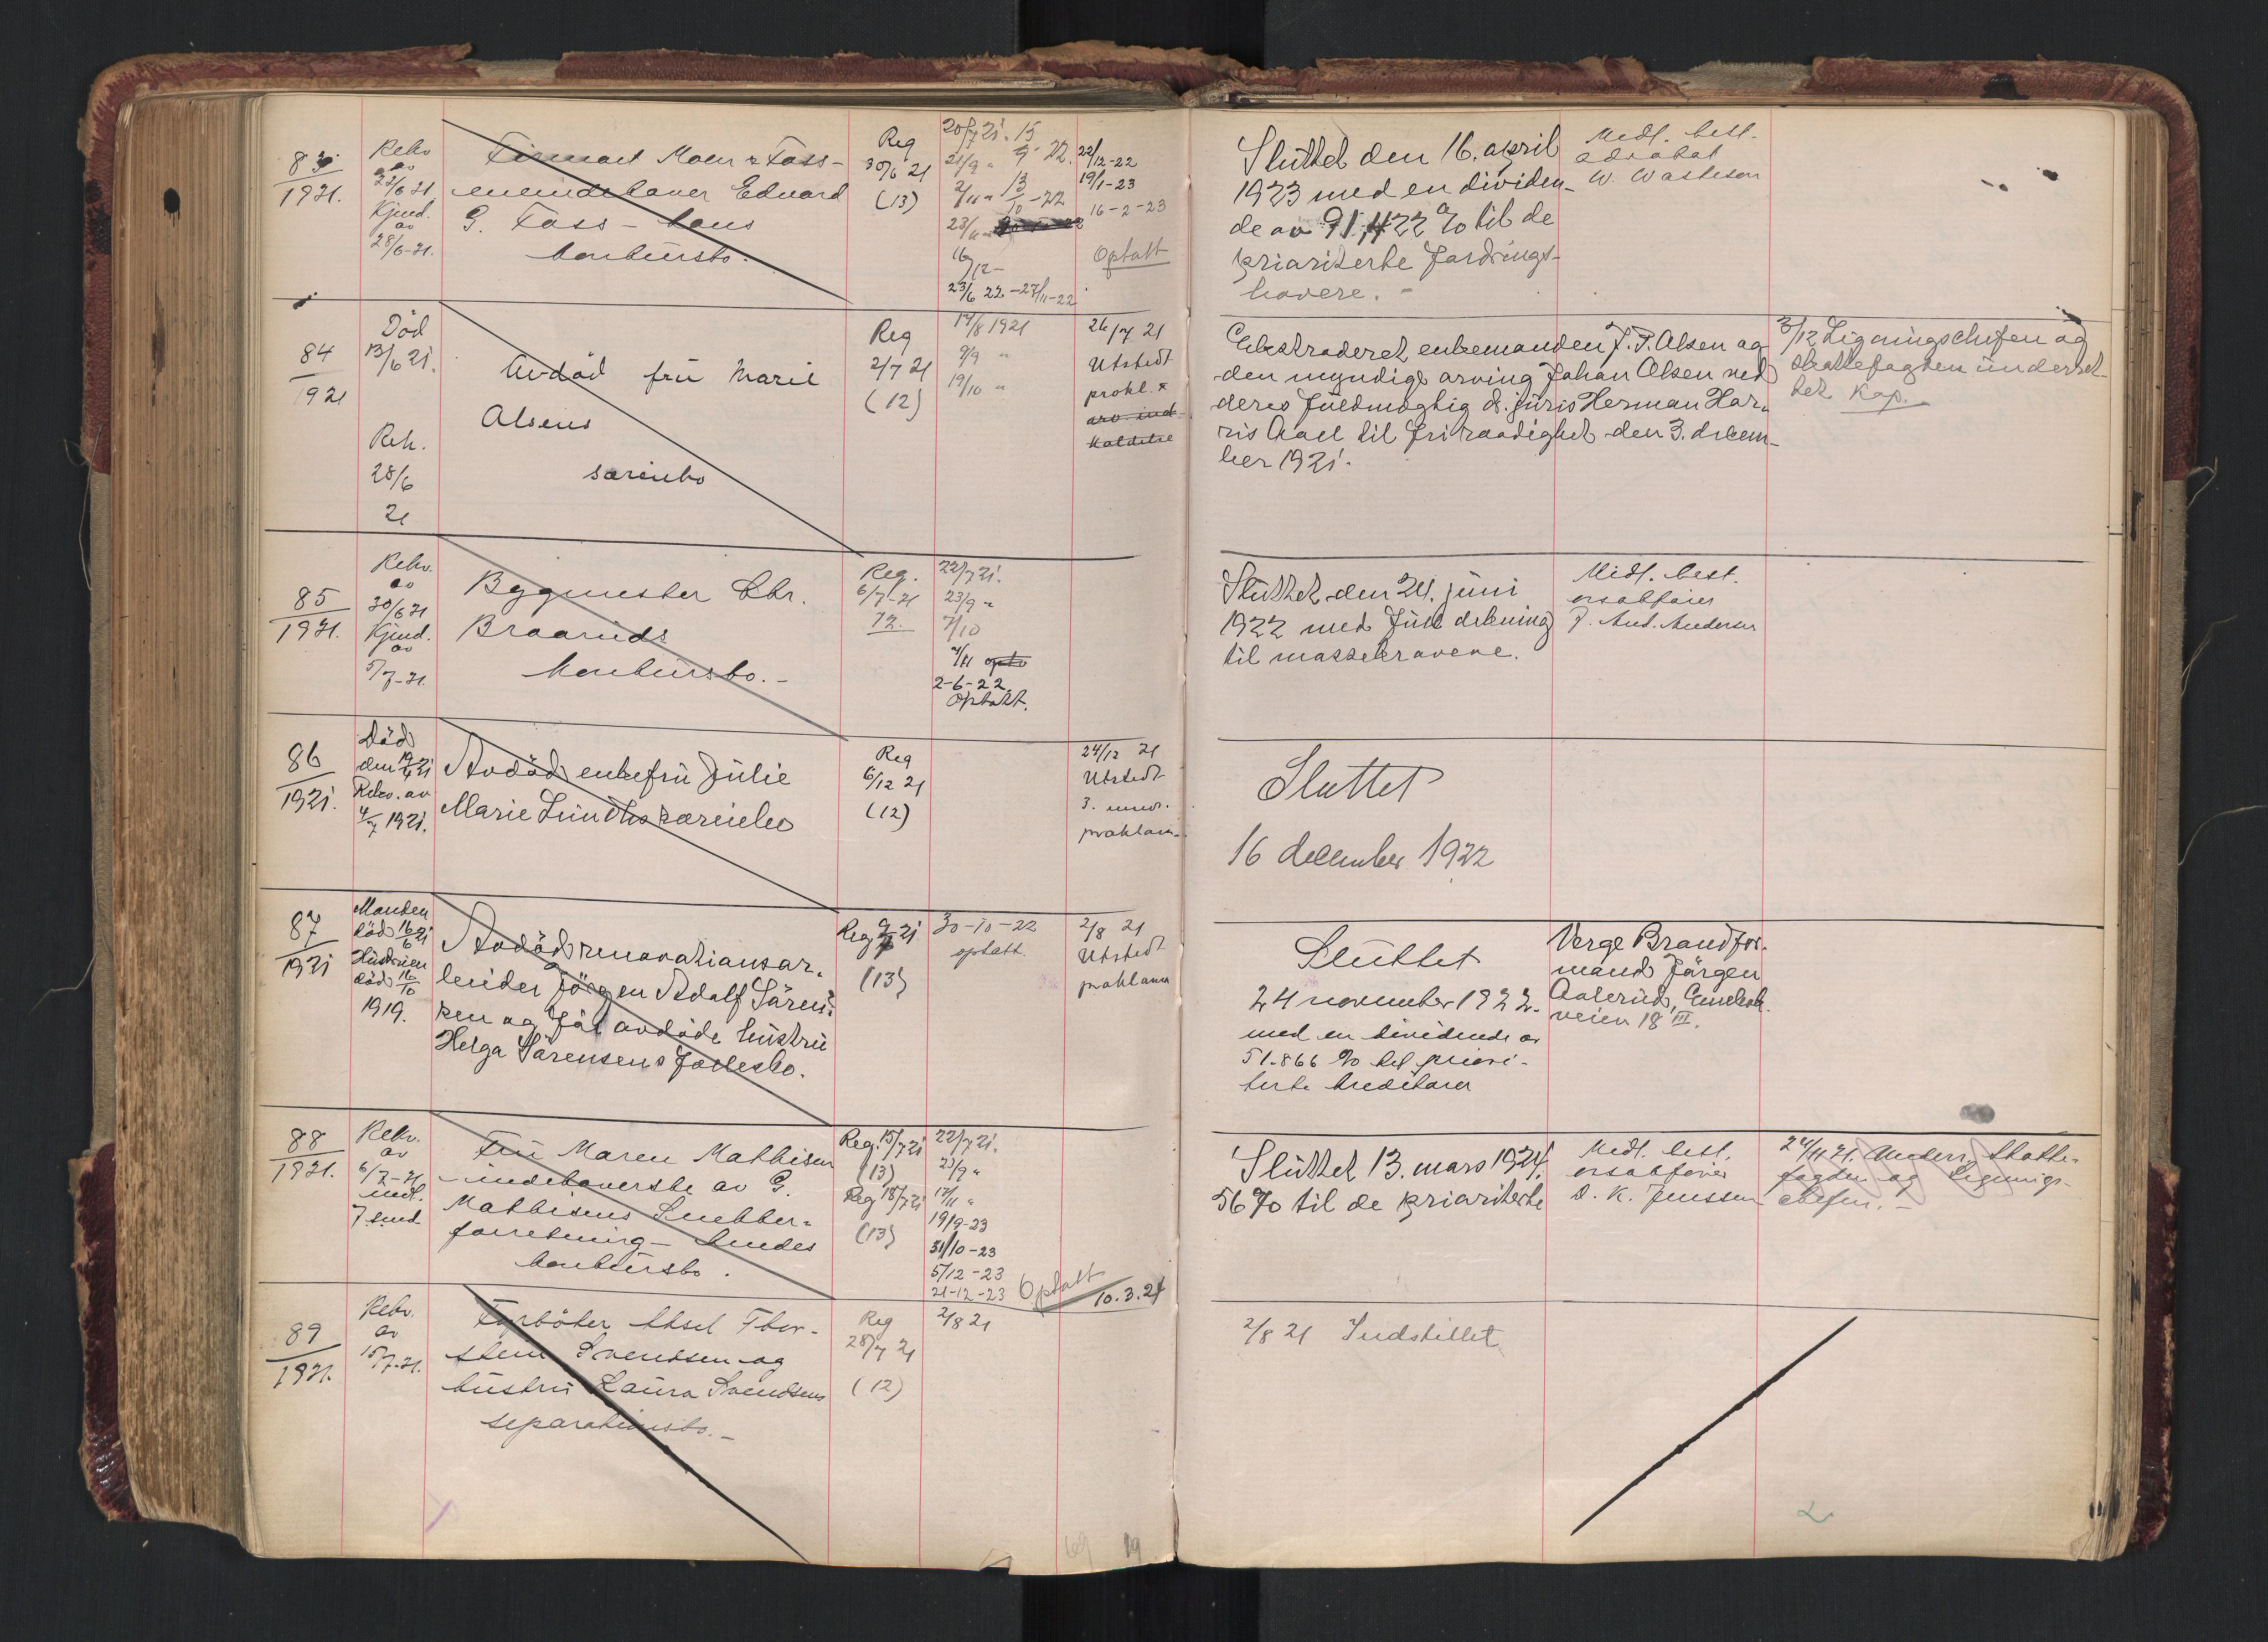 83
1921.
Rekv
av
22/6 21
Kjend.
av
28/6-21.
Firmaet Moen & Foss-
eneindehaver Edvard
G. Foss - hans
konkursbo.
Reg
30/6 21
(13)
20/7 21.
21/9 "
2/11 "
23/11 "
16/12 -
23/6 22 - 27/11-22
15/9 22.
13/10 - 22
22/12-22
19/1-23
16-2-23
Optatt
Sluttet den 16. april
1923 med en dividen-
de av 91,422 % til de
prioriterte fordrings-
havere. -
Midl. best.
advokat
W. Wasteson
84
1921
Död
13/6 21.
Rek.
28/6
21
Avdöd frü Marie
Olsens
særeiebo
Reg
2/7 21
(12)
17/8 1921
9/9 "
19/10 "
26/7 21
Utstedt
prokl. &
arv. ind-
kaldelse
Ekstraderet enkemanden J. P. Olsen og
den myndige arving Johan Olsen ved
deres fuldmægtig dr. juris Herman Har-
ris Aall til fri raadighet den 3. decem-
ber 1921.
3/12 Ligningschefen og
skattefogden underret-
tet Kop.
85
1921.
Rekv.
av
30/6 21
Kjend.
av
5/7-21.
Bygmester Chr.
Braaruds
konkursbo. -
Reg.
6/7-21
12.
22/7 21.
23/9 "
7/10
4/11 opta
2-6-22
Optatt.
Sluttet den 24. juni
1922 med full dekning
til massekravene.
Midl. best.
orsakfører
J. Ant. Andersen
86
1921.
Död
den 19/4 21
Rekv. av
4/7 1921.
Avdöd enkefrü Julie
Marie Lunds særeiebo
Reg
6/12 21
(12)
24/12 21
Utstedt
3. mndr.
proklam.
Sluttet
16 december 1922
87
1921
Manden
död 16/6 21
Hustruen
död 16/10
1919.
Avdöd renovationsar-
beider Jörgen Adolf Sören-
sen og før avdöde hustru
Helga Sörensens fællesbo.
Reg 9/7 21
(13)
30-10-22
optatt.
2/8 21
Utstedt
proklama
Sluttet
24 november 1922.
med en dividende av
51.866 % til priori-
terte kreditorer
Verge Brandfor-
mand Jörgen
veien 18 III.
88
1921.
Rekv.
av
6/7-21
medl.
7 s.md.
Frü Maren Mathisen
indehaverske av G.
Mathisens Snekker-
forretning - hendes
konkursbo.
Reg. 15/7 21
(13)
Reg 18/7 21
(13)
22/7 21.
23/9 "
17/11 "
19/9-23
31/10-23
5/12-23
21-12-23
Optatt
10.3.24
Sluttet 13. mars 1924.
56 % til de prioriterte
Midl. best.
orsakfører
O. K. Jenssen
24/11 21. Underr. Skatte-
fogden og Lignings-
chefen. -
89
1921.
Rekv.
av
15/7-21.
Fyrböter Aksel Thor-
stein Svendsen og
hustru Laura Svendsens
separationsbo. -
Reg
28/7 21
(12)
2/8 21
2/8 21 Indstillet
69 19
2